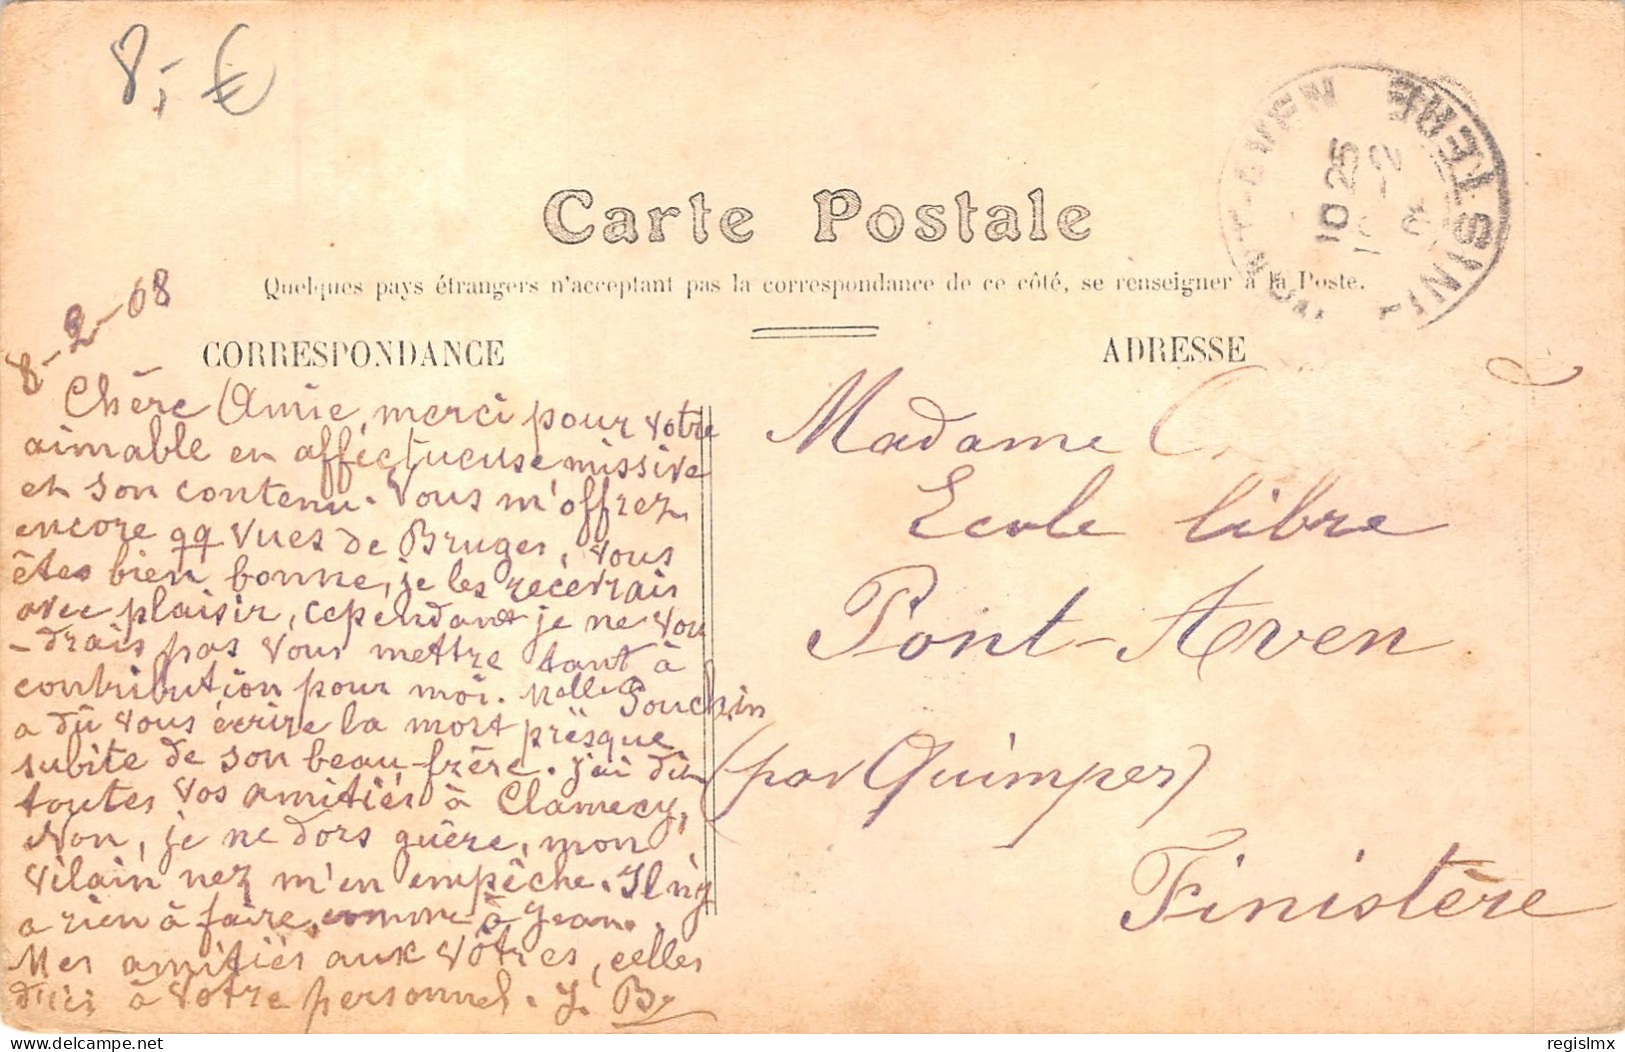 8,- €
Carte Postale
Quelques pays étrangers n'acceptant pas la correspondance de ce côté, se renseigner à la Poste.
CORRESPONDANCE
ADRESSE
FINISTERE
10 25
8-2-08
Chère Amie, merci pour votre
aimable en affectueuse missive
et son contenu. Vous m'offrez
encore qq vues de Bruges, vous
êtes bien bonne, je les recevrais
avec plaisir, cependant je ne vou
-drais pas vous mettre tant à
contribution pour moi. Melle Pouchin
a dû vous écrire la mort presque
subite de son beau-frère. J'ai dit
toutes vos amitiés à Clamecy,
Non, je ne dors guère, mon
vilain nez m'en empêche. Il n'y
a rien à faire, comme à Jean.
Mes amitiés aux vôtres, celles
d'ici à votre personnel. J. B.
Madame
Ecole libre
Pont-Aven
(par Quimper)
Finistère
delcampe.net
regislmx